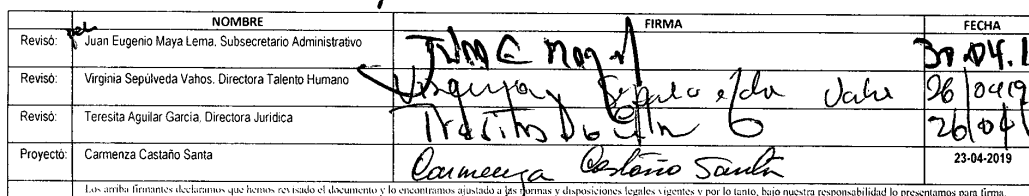 NOMBRE FIRMA FECHA
Revisó: Juan Eugenio Maya Lema. Subsecretario Administrativo 30.04.1
Revisó: Virginia Sepúlveda Vahos. Directora Talento Humano 26/0419
Revisó: Teresita Aguilar García. Directora Jurídica 26/04/
Proyectó: Carmenza Castaño Santa Carmenza Castaño Santa 23-04-2019
Los arriba firmantes declaramos que hemos revisado el documento y lo encontramos ajustado a las normas y disposiciones legales vigentes y por lo tanto, bajo nuestra responsabilidad lo presentamos para firma.